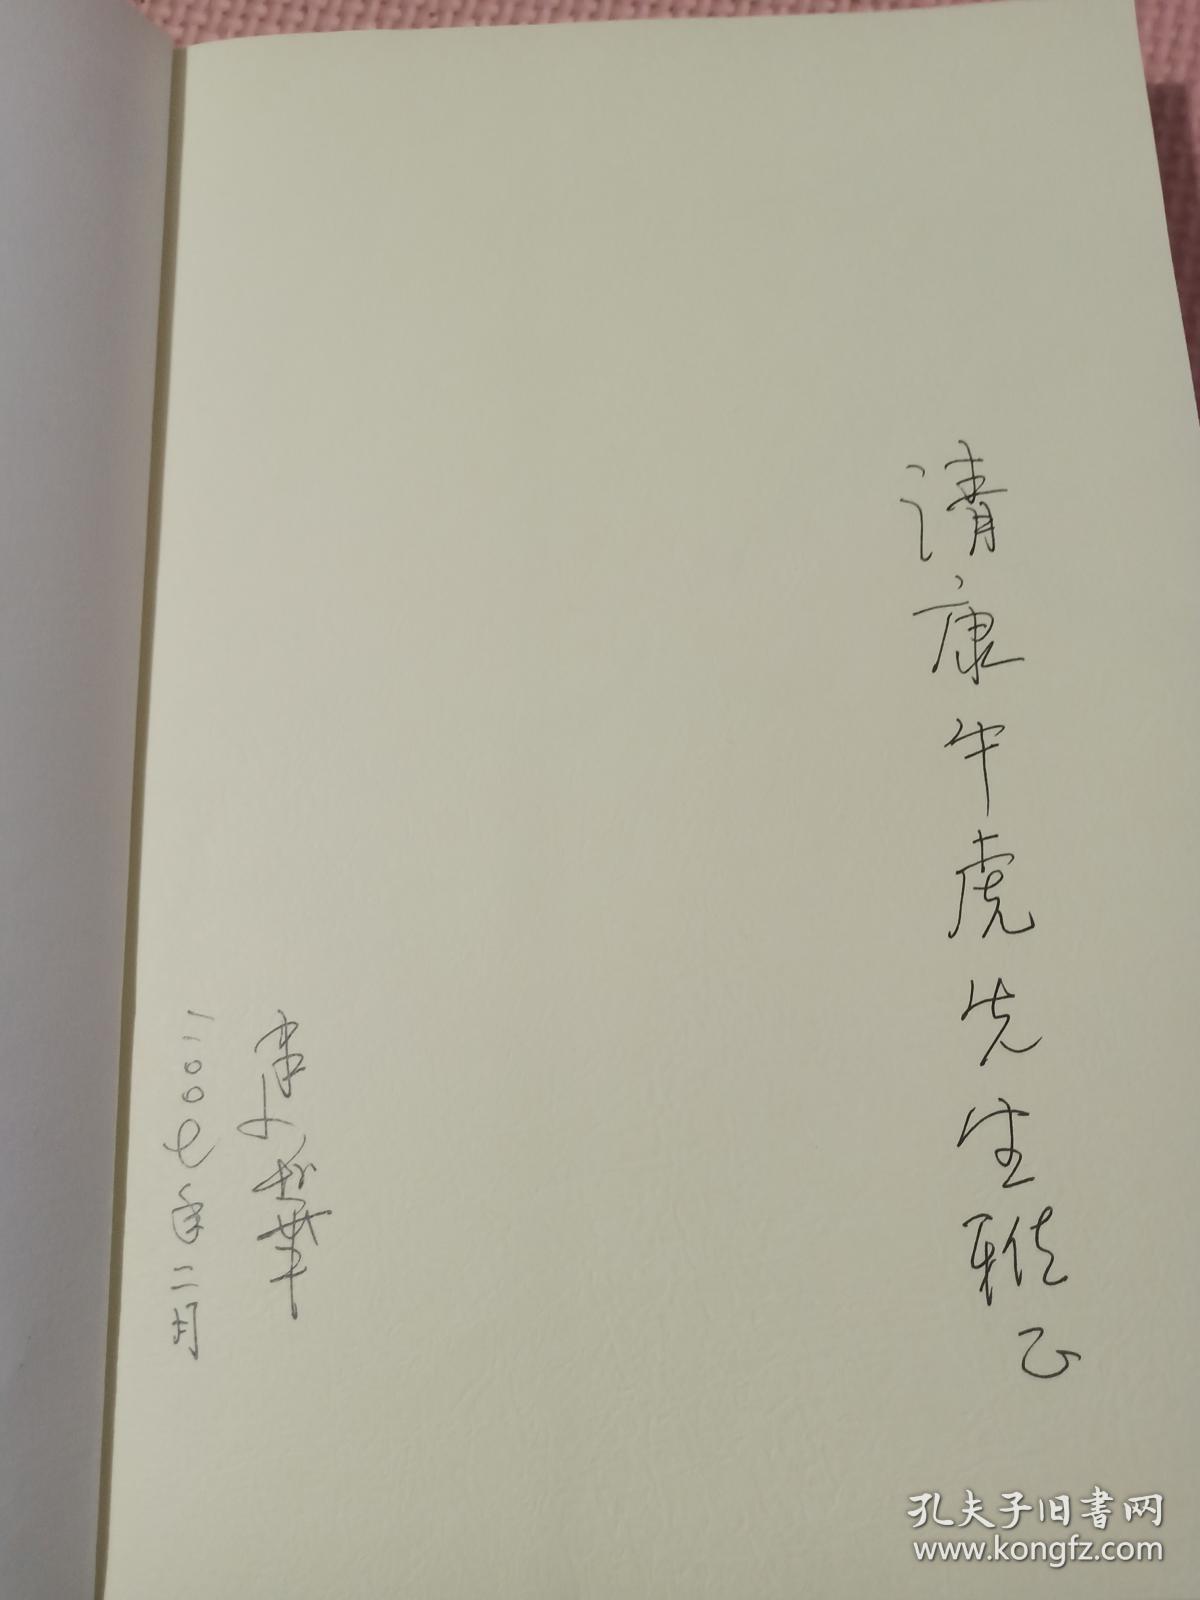 请康牛虎先生雅正
二〇〇七年二月
孔夫子旧书网
www.kongfz.com